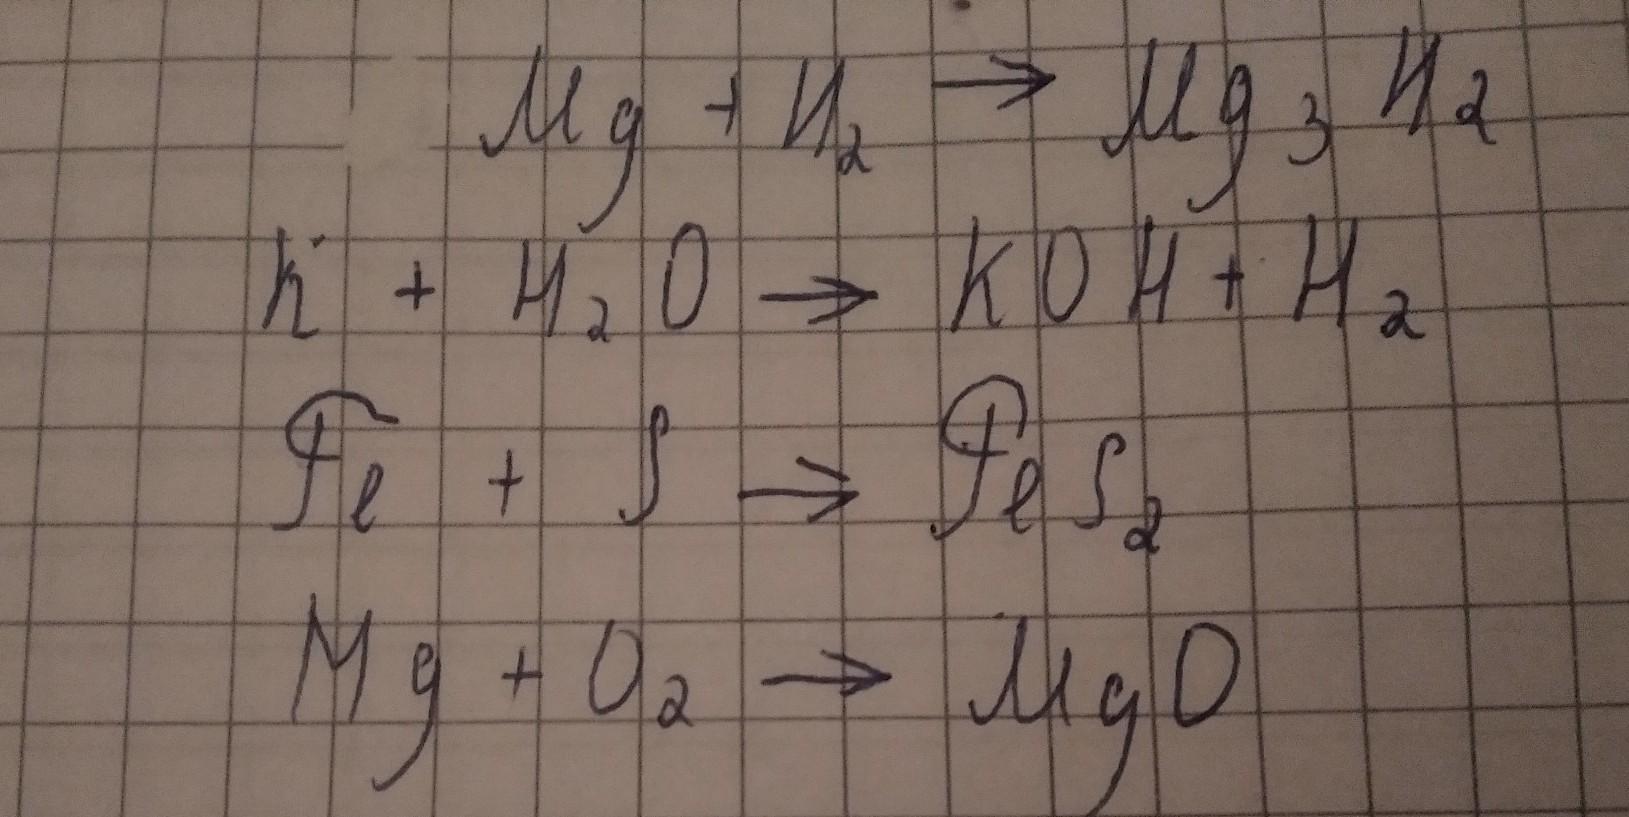 Mg + N₂ → Mg₃N₂
K + H₂O → KOH + H₂
Fe + S → FeS₂
Mg + O₂ → MgO